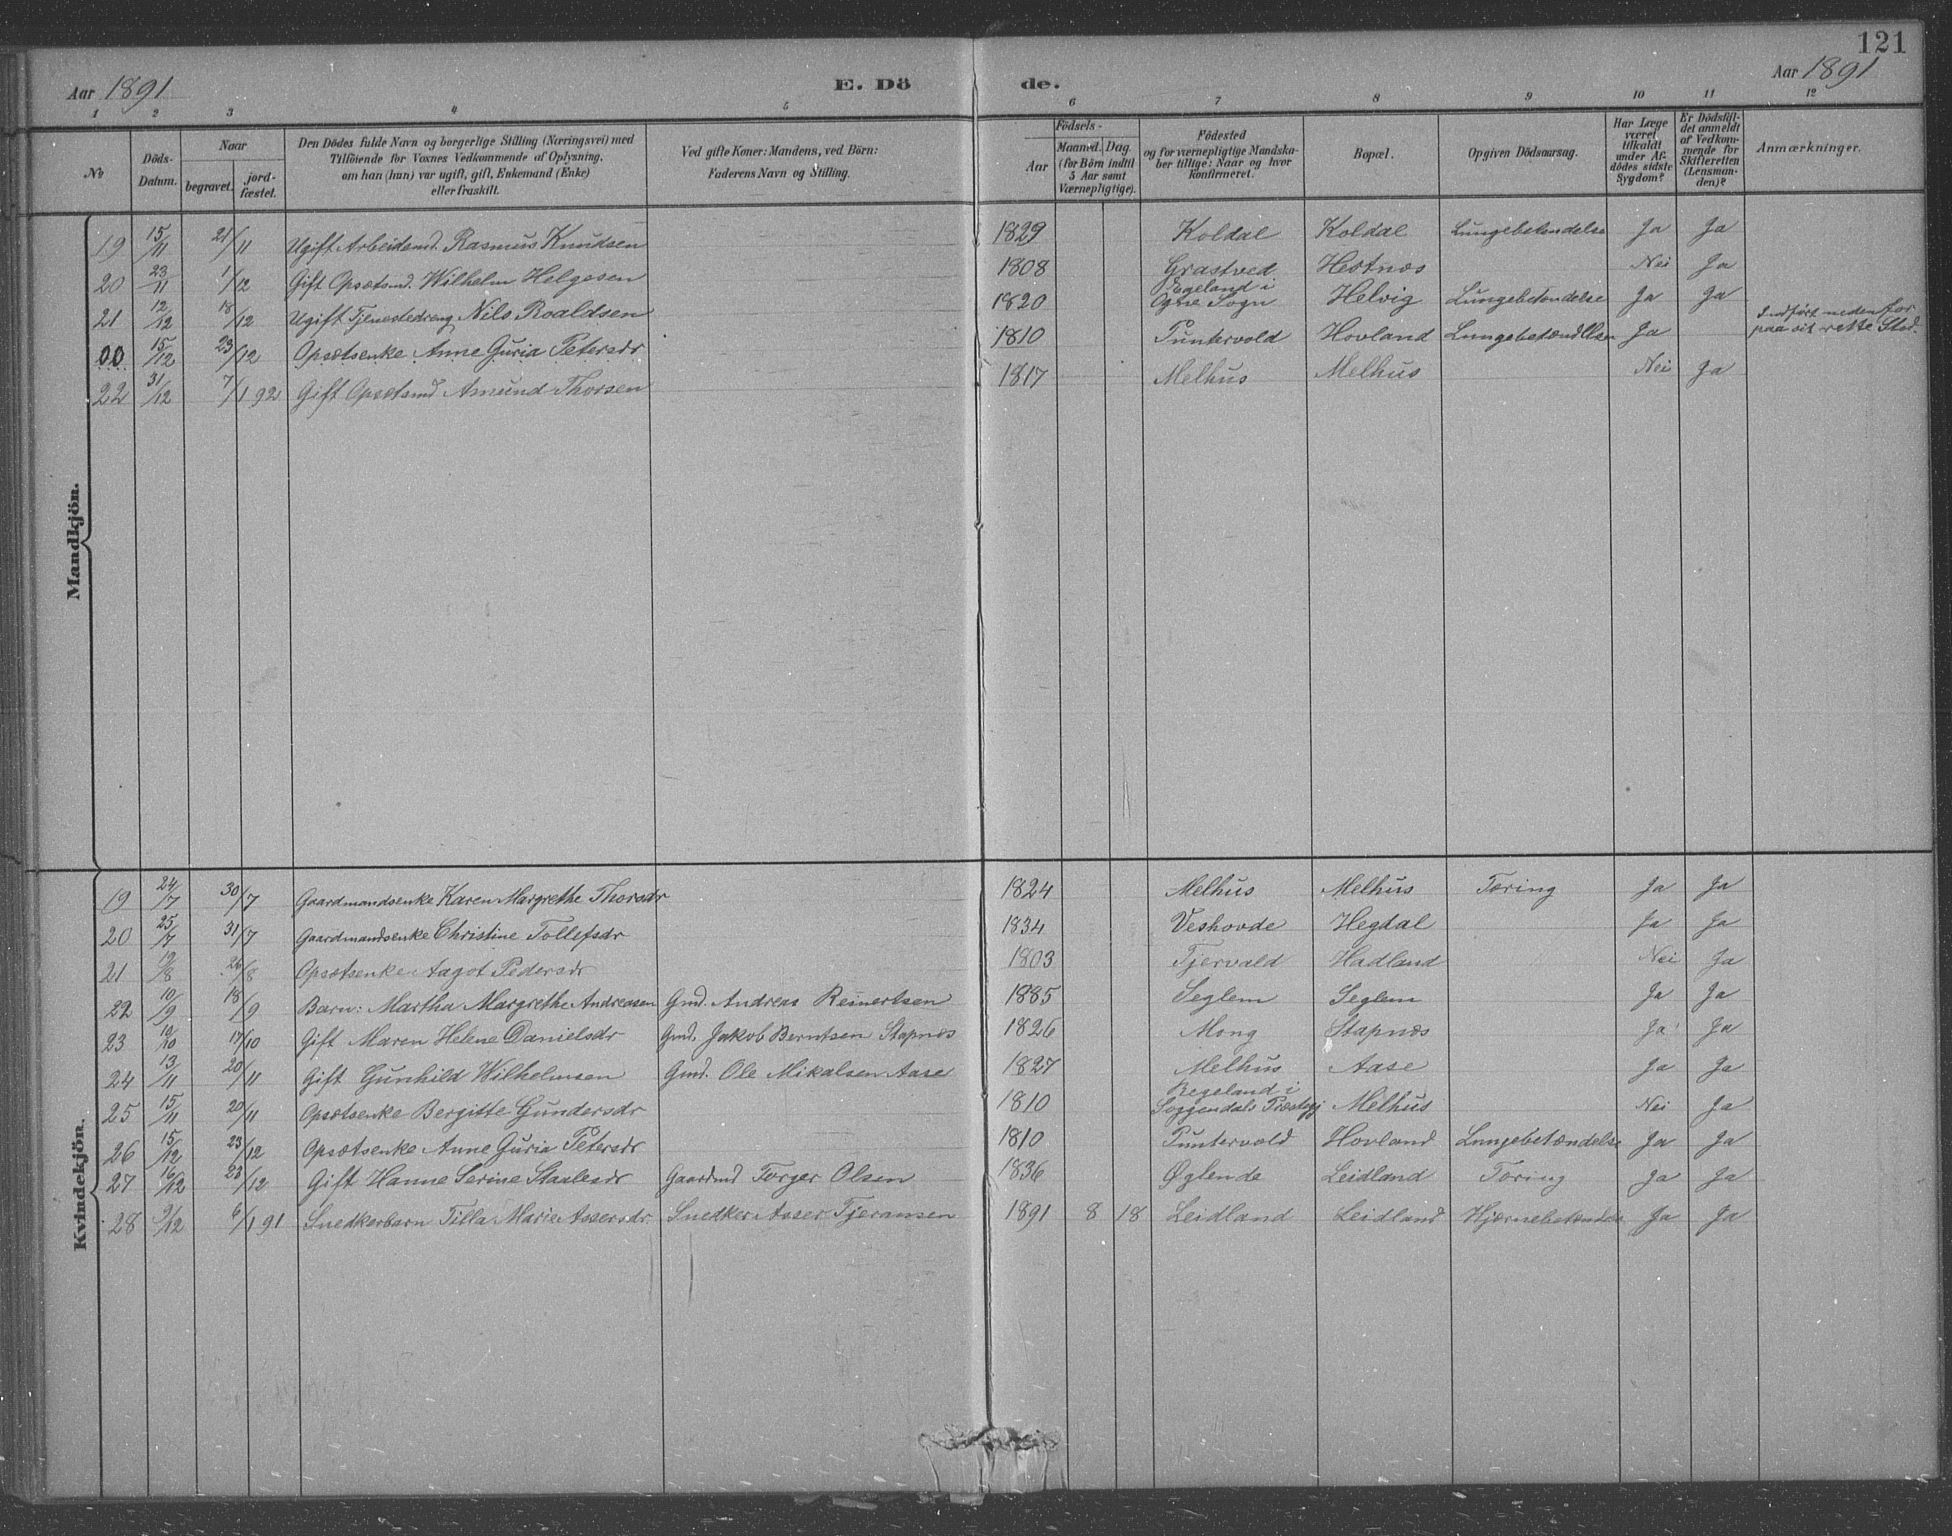 121
Aar 1891 E. Dö de. Aar 1891
1 2 3 4 5 6 7 8 9 10 11 12
No
Döds-Datum.
Naar
begravet. jord-fæstet.
Den Dödes fulde Navn og borgerlige Stilling (Næringsvei) med
Tilföiende for Voxnes Vedkommende af Oplysning,
om han (hun) var ugift, gift, Enkemand (Enke)
eller fraskilt.
Ved gifte Koner: Mandens, ved Börn:
Faderens Navn og Stilling.
Födsels-
Aar
Maaned. Dag.
(for Börn indtil
5 Aar samt
Værnepligtige).
Födested
og for værnepligtige Mandska-
ber tillige: Naar og hvor
konfirmeret.
Bopæl.
Opgiven Dödsaarsag.
Har Læge
været
tilkaldt
under Af-
dödes sidste
Sygdom?
Er Dödsfal-
det anmeldt
af Vedkom-
mende for
Skifteretten
(Lensman-
den)?
Anmærkninger.
Mandkjön.
19 15/11 21/11 Ugift Arbeidsmd. Rasmus Knudsen 1829 Koldal Koldal Lungebetendelse Ja Ja
20 23/11 1/12 Gift Opsætsmd. Wilhelm Helgesen 1808 Grastved Hestnes Nei Ja
21 12/12 18/12 Ugift Tjenestedreng Nils Roaldsen 1820 Egeland i Ogne Sogn Helvig Lungebetændelse Ja Ja
00 15/12 23/12 Opsætsenke Anne Guria Petersdr 1810 Puntervold Hovland Lungebetændllsen Ja Indført nedenfor paa sit rette Sted.
22 31/12 7/1 92 Gift Opsætsmd Amund Thorsen 1817 Melhus Melhus Nei Ja
Kvindekjön.
19 24/7 30/7 Gaardmandsenke Karen Margrethe Thorsdr 1824 Melhus Melhus Tæring Ja Ja
20 25/7 31/7 Gaardmandsenke Christine Tollefsdr 1834 Veshovde Hegdal Ja Ja
21 19/8 26/8 Opsætsenke Aagot Pedersdr 1803 Tjervald Hadland Nei Ja
22 10/9 18/9 Barn: Martha Margrethe Andreasen Gmd. Andreas Reinertsen 1885 Seglem Seglem Ja Ja
23 10/10 17/10 Gift Maren Helene Danielsdr Gmd. Jakob Berntsen Stapnæs 1826 Mong Stapnæs Ja Ja
24 13/11 20/11 Gift Gunhild Wilhelmsen Gmd. Ole Mikalsen Aase 1827 Melhus Aase Ja Ja
25 15/11 20/11 Opsætsenke Bergitte Gundersdr 1810 Regeland i Soggendals Præstegj Melhus Nei Ja
26 15/12 23/12 Opsætsenke Anne Guria Petersdr 1810 Puntervold Hovland Lungebetændelse Ja Ja
27 16/12 23/12 Gift Hanne Serine Staalesdr Gaardmd Torger Olsen 1836 Øglende Leidland Tæring Ja Ja
28 9/12 6/1 91 Snedkerbarn Tilla Marie Assersdr. Snedker Asser Tjeransen 1891 8 18 Leidland Leidland Hjernebetændelse Ja Ja